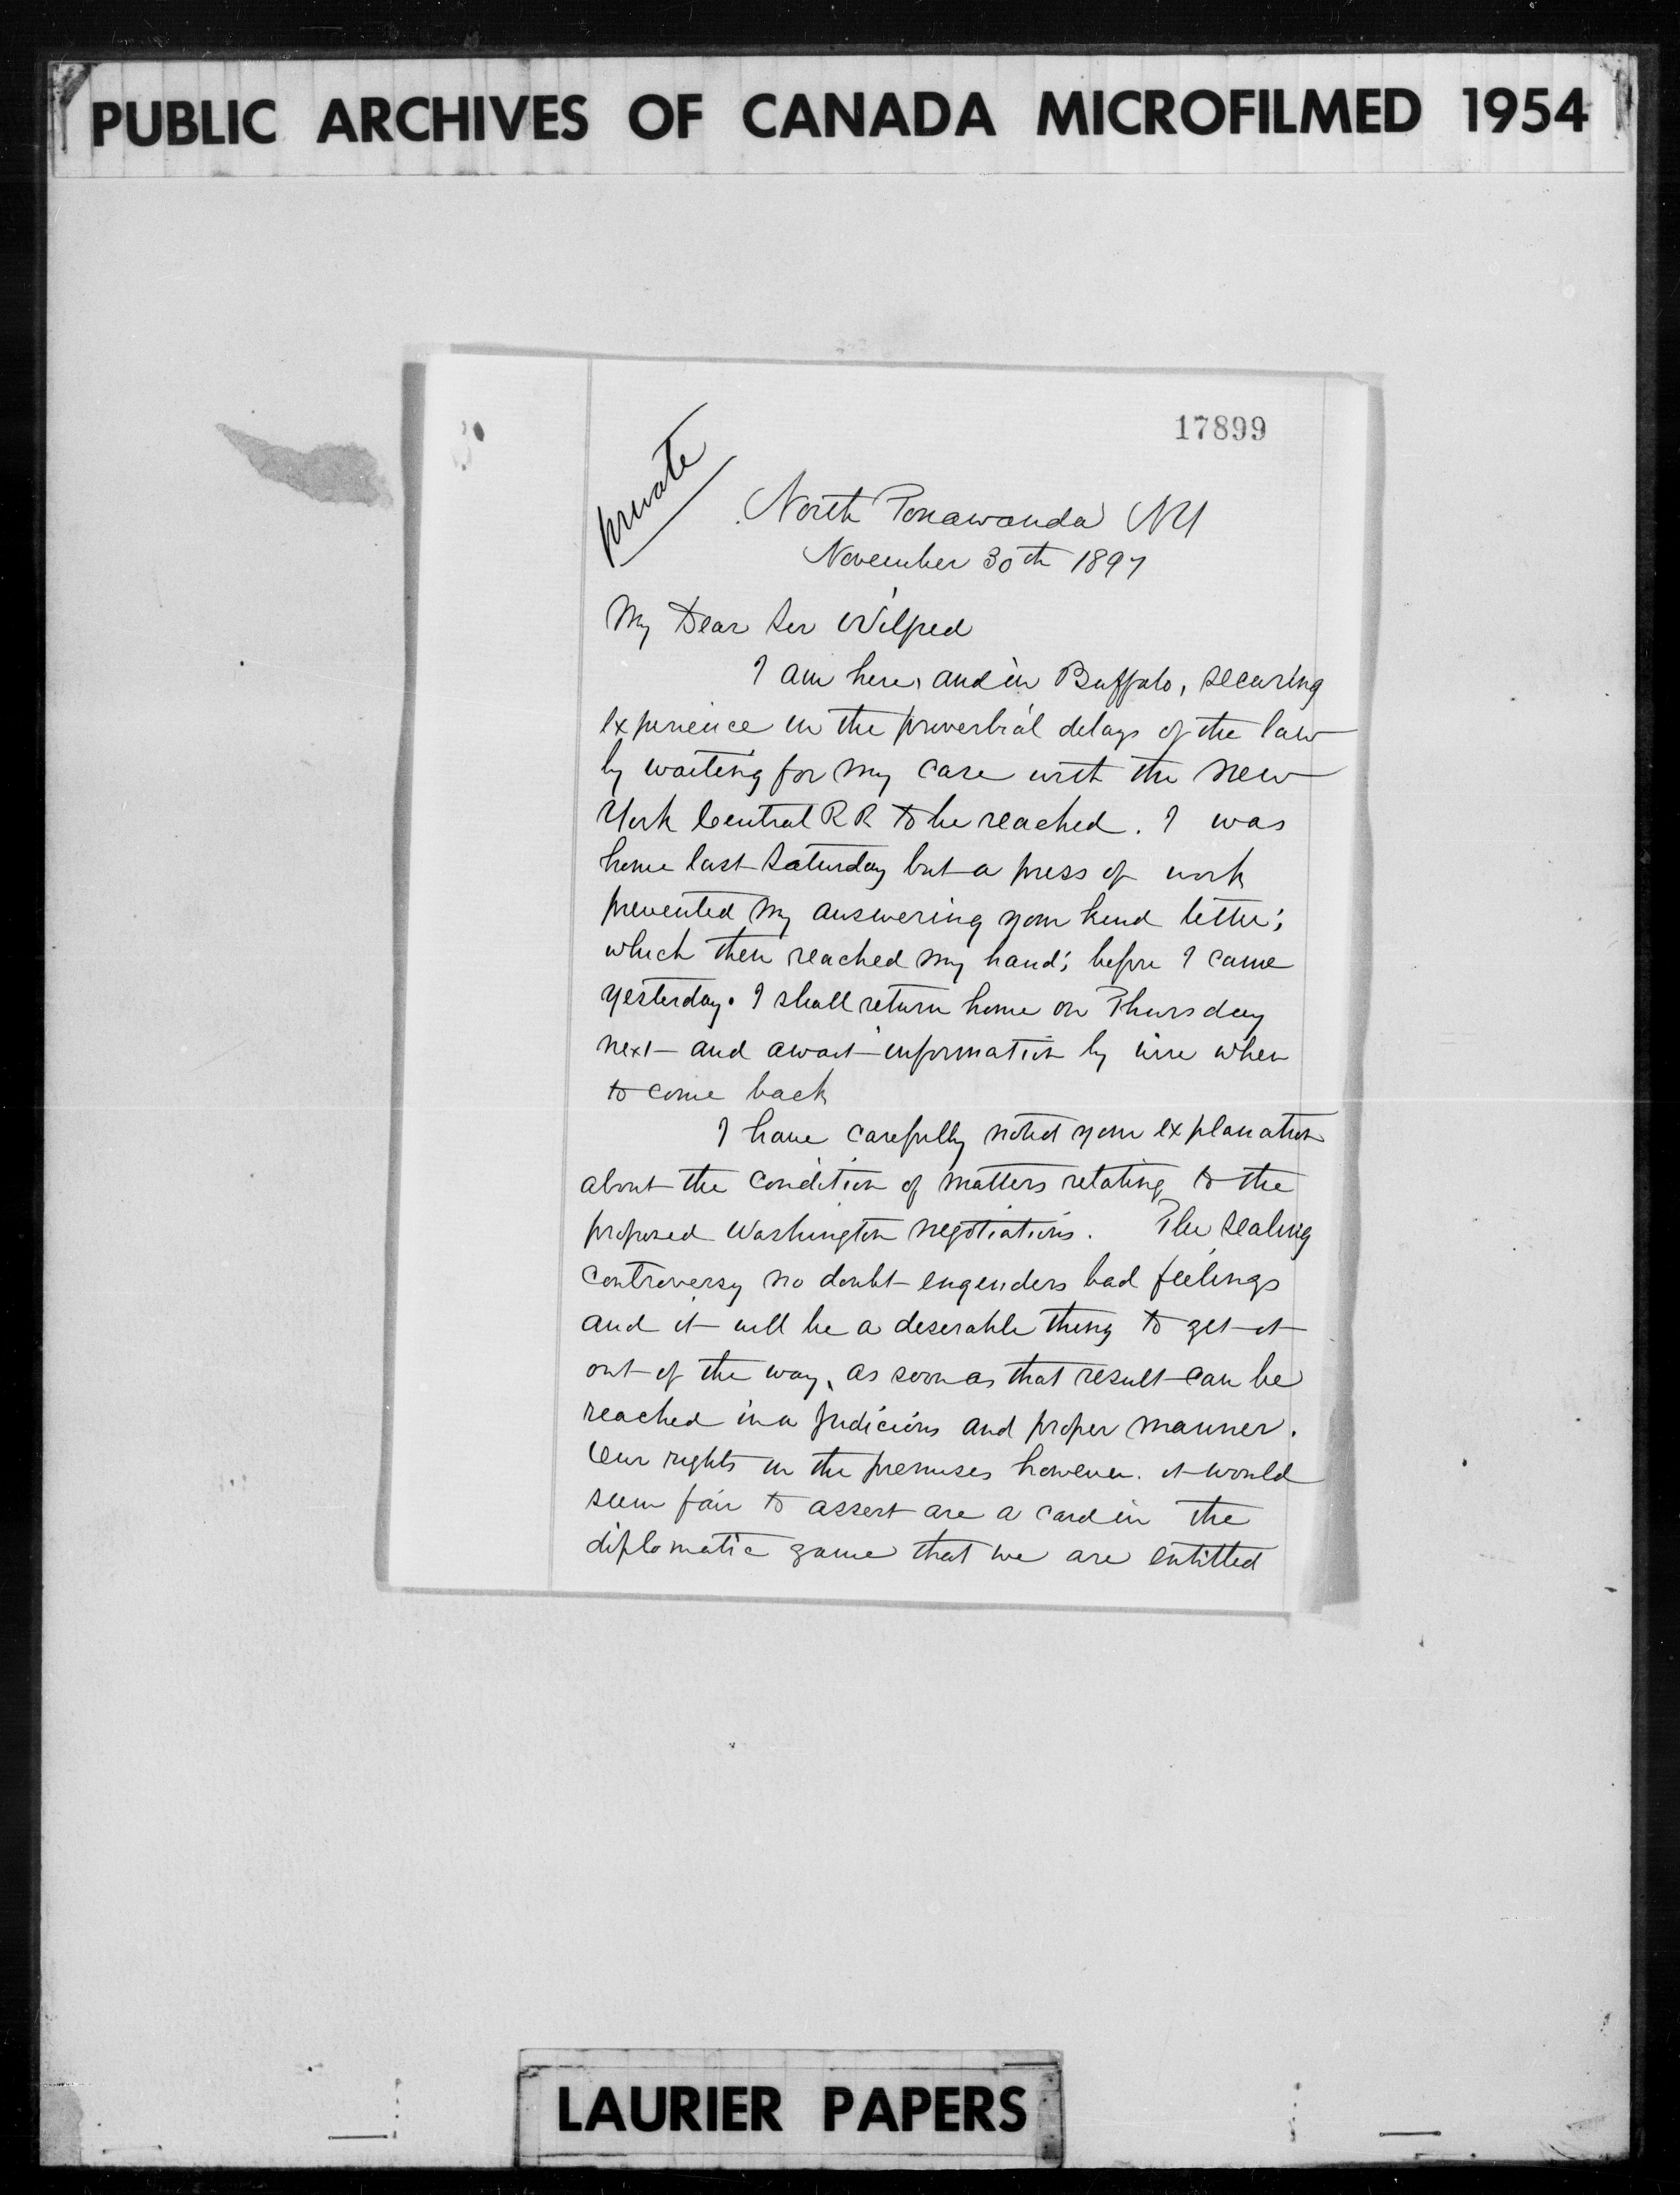 PUBLIC ARCHIVES OF CANADA MICROFILMED 1954
17899
private
North Tonawanda NY
November 30th 1897
My Dear Sir Wilfred
I am here, and in Buffalo, securing
experience in the proverbial delays of the law
by waiting for my case with the New
York Central RR to be reached. I was
home last Saturday but a press of work
prevented my answering your kind letter;
which then reached my hand; before I came
yesterday. I shall return home on Thursday
next and await information by wire when
to come back
I have carefully noted your explanation
about the condition of matters relating to the
proposed Washington negotiations. The sealing
controversy no doubt engenders bad feelings
and it will be a desirable thing to get it
out of the way, as soon as that result can be
reached in a judicious and proper manner.
Our rights in the premises however. it would
seem fair to assert are a card in the
diplomatic game that we are entitled
LAURIER PAPERS